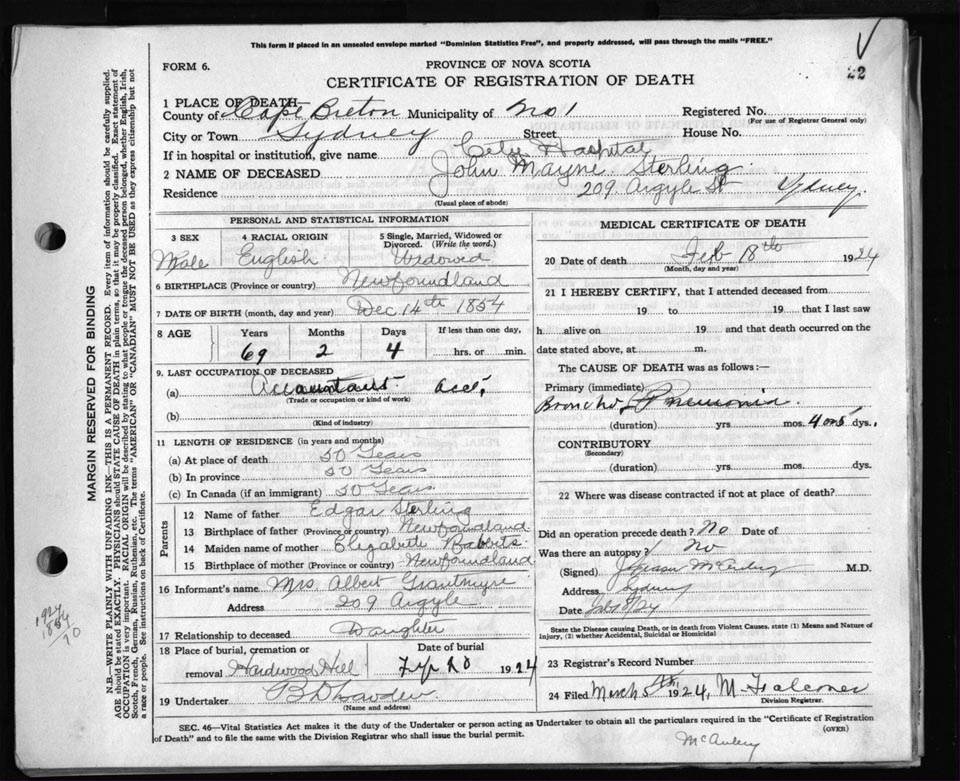 This form if placed in an unsealed envelope marked "Dominion Statistics Free", and properly addressed, will pass through the mails "FREE."
22
FORM 6.
PROVINCE OF NOVA SCOTIA
CERTIFICATE OF REGISTRATION OF DEATH
1 PLACE OF DEATH—
County of Cape Breton Municipality of No 1 Registered No.
(For use of Registrar General only)
City or Town Sydney Street House No.
If in hospital or institution, give name City Hospital
2 NAME OF DECEASED John Mayne Sterling
Residence 209 Argyle St Sydney
(Usual place of abode)
PERSONAL AND STATISTICAL INFORMATION
3 SEX 4 RACIAL ORIGIN 5 Single, Married, Widowed or Divorced. (Write the word.)
Male English Widowed
6 BIRTHPLACE (Province or country) Newfoundland
7 DATE OF BIRTH (month, day and year) Dec 14th 1854
8 AGE Years Months Days If less than one day,
69 2 4 hrs. or min.
9. LAST OCCUPATION OF DECEASED
(a) Accountant acct,
(Trade or occupation or kind of work)
(b)
(Kind of industry)
11 LENGTH OF RESIDENCE (in years and months)
(a) At place of death 20 Years
(b) In province 20 Years
(c) In Canada (if an immigrant) 20 Years
Parents
12 Name of father Edgar Sterling
13 Birthplace of father (Province or country) Newfoundland
14 Maiden name of mother Elizabeth
15 Birthplace of mother (Province or country) Newfoundland
16 Informant's name Mrs. Albert Grantmyre
Address 209 Argyle
17 Relationship to deceased Daughter
18 Place of burial, cremation or removal Date of burial
Hardwood Hill 20 1924
19 Undertaker
(Name and address)
MEDICAL CERTIFICATE OF DEATH
20 Date of death Feb 18th 1924
(Month, day and year)
21 I HEREBY CERTIFY, that I attended deceased from
19 to 19 that I last saw
h alive on 19 and that death occurred on the
date stated above, at m.
The CAUSE OF DEATH was as follows:—
Primary (immediate)
Broncho Pneumonia
(duration) yrs. mos. 4 or 5 dys.
CONTRIBUTORY
(Secondary)
(duration) yrs. mos. dys.
22 Where was disease contracted if not at place of death?
Did an operation precede death? No Date of
Was there an autopsy? No
(Signed) M.D.
Address Sydney
Date
State the Disease causing Death, or in death from Violent Causes, state (1) Means and Nature of
Injury, (2) whether Accidental, Suicidal or Homicidal
23 Registrar's Record Number
24 Filed March 5th 1924, M Falconer
Division Registrar.
SEC. 46—Vital Statistics Act makes it the duty of the Undertaker or person acting as Undertaker to obtain all the particulars required in the "Certificate of Registration
of Death" and to file the same with the Division Registrar who shall issue the burial permit.
(OVER)
MARGIN RESERVED FOR BINDING
N.B.—WRITE PLAINLY WITH UNFADING INK—THIS IS A PERMANENT RECORD. Every item of information should be carefully supplied.
AGE should be stated EXACTLY. PHYSICIANS should STATE CAUSE OF DEATH in plain terms, so that it may be properly classified. Exact statement of
OCCUPATION is very important. RACIAL ORIGIN will be described by stating to what people or tongue the deceased person belonged, whether English, Irish,
Scotch, French, German, Russian, Ruthenian, etc. The terms "AMERICAN" OR "CANADIAN" MUST NOT BE USED as they express citizenship but not
a race or people. See instructions on back of Certificate.
1924
1854
70